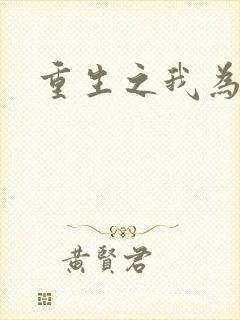 重生之我為
黃賢君